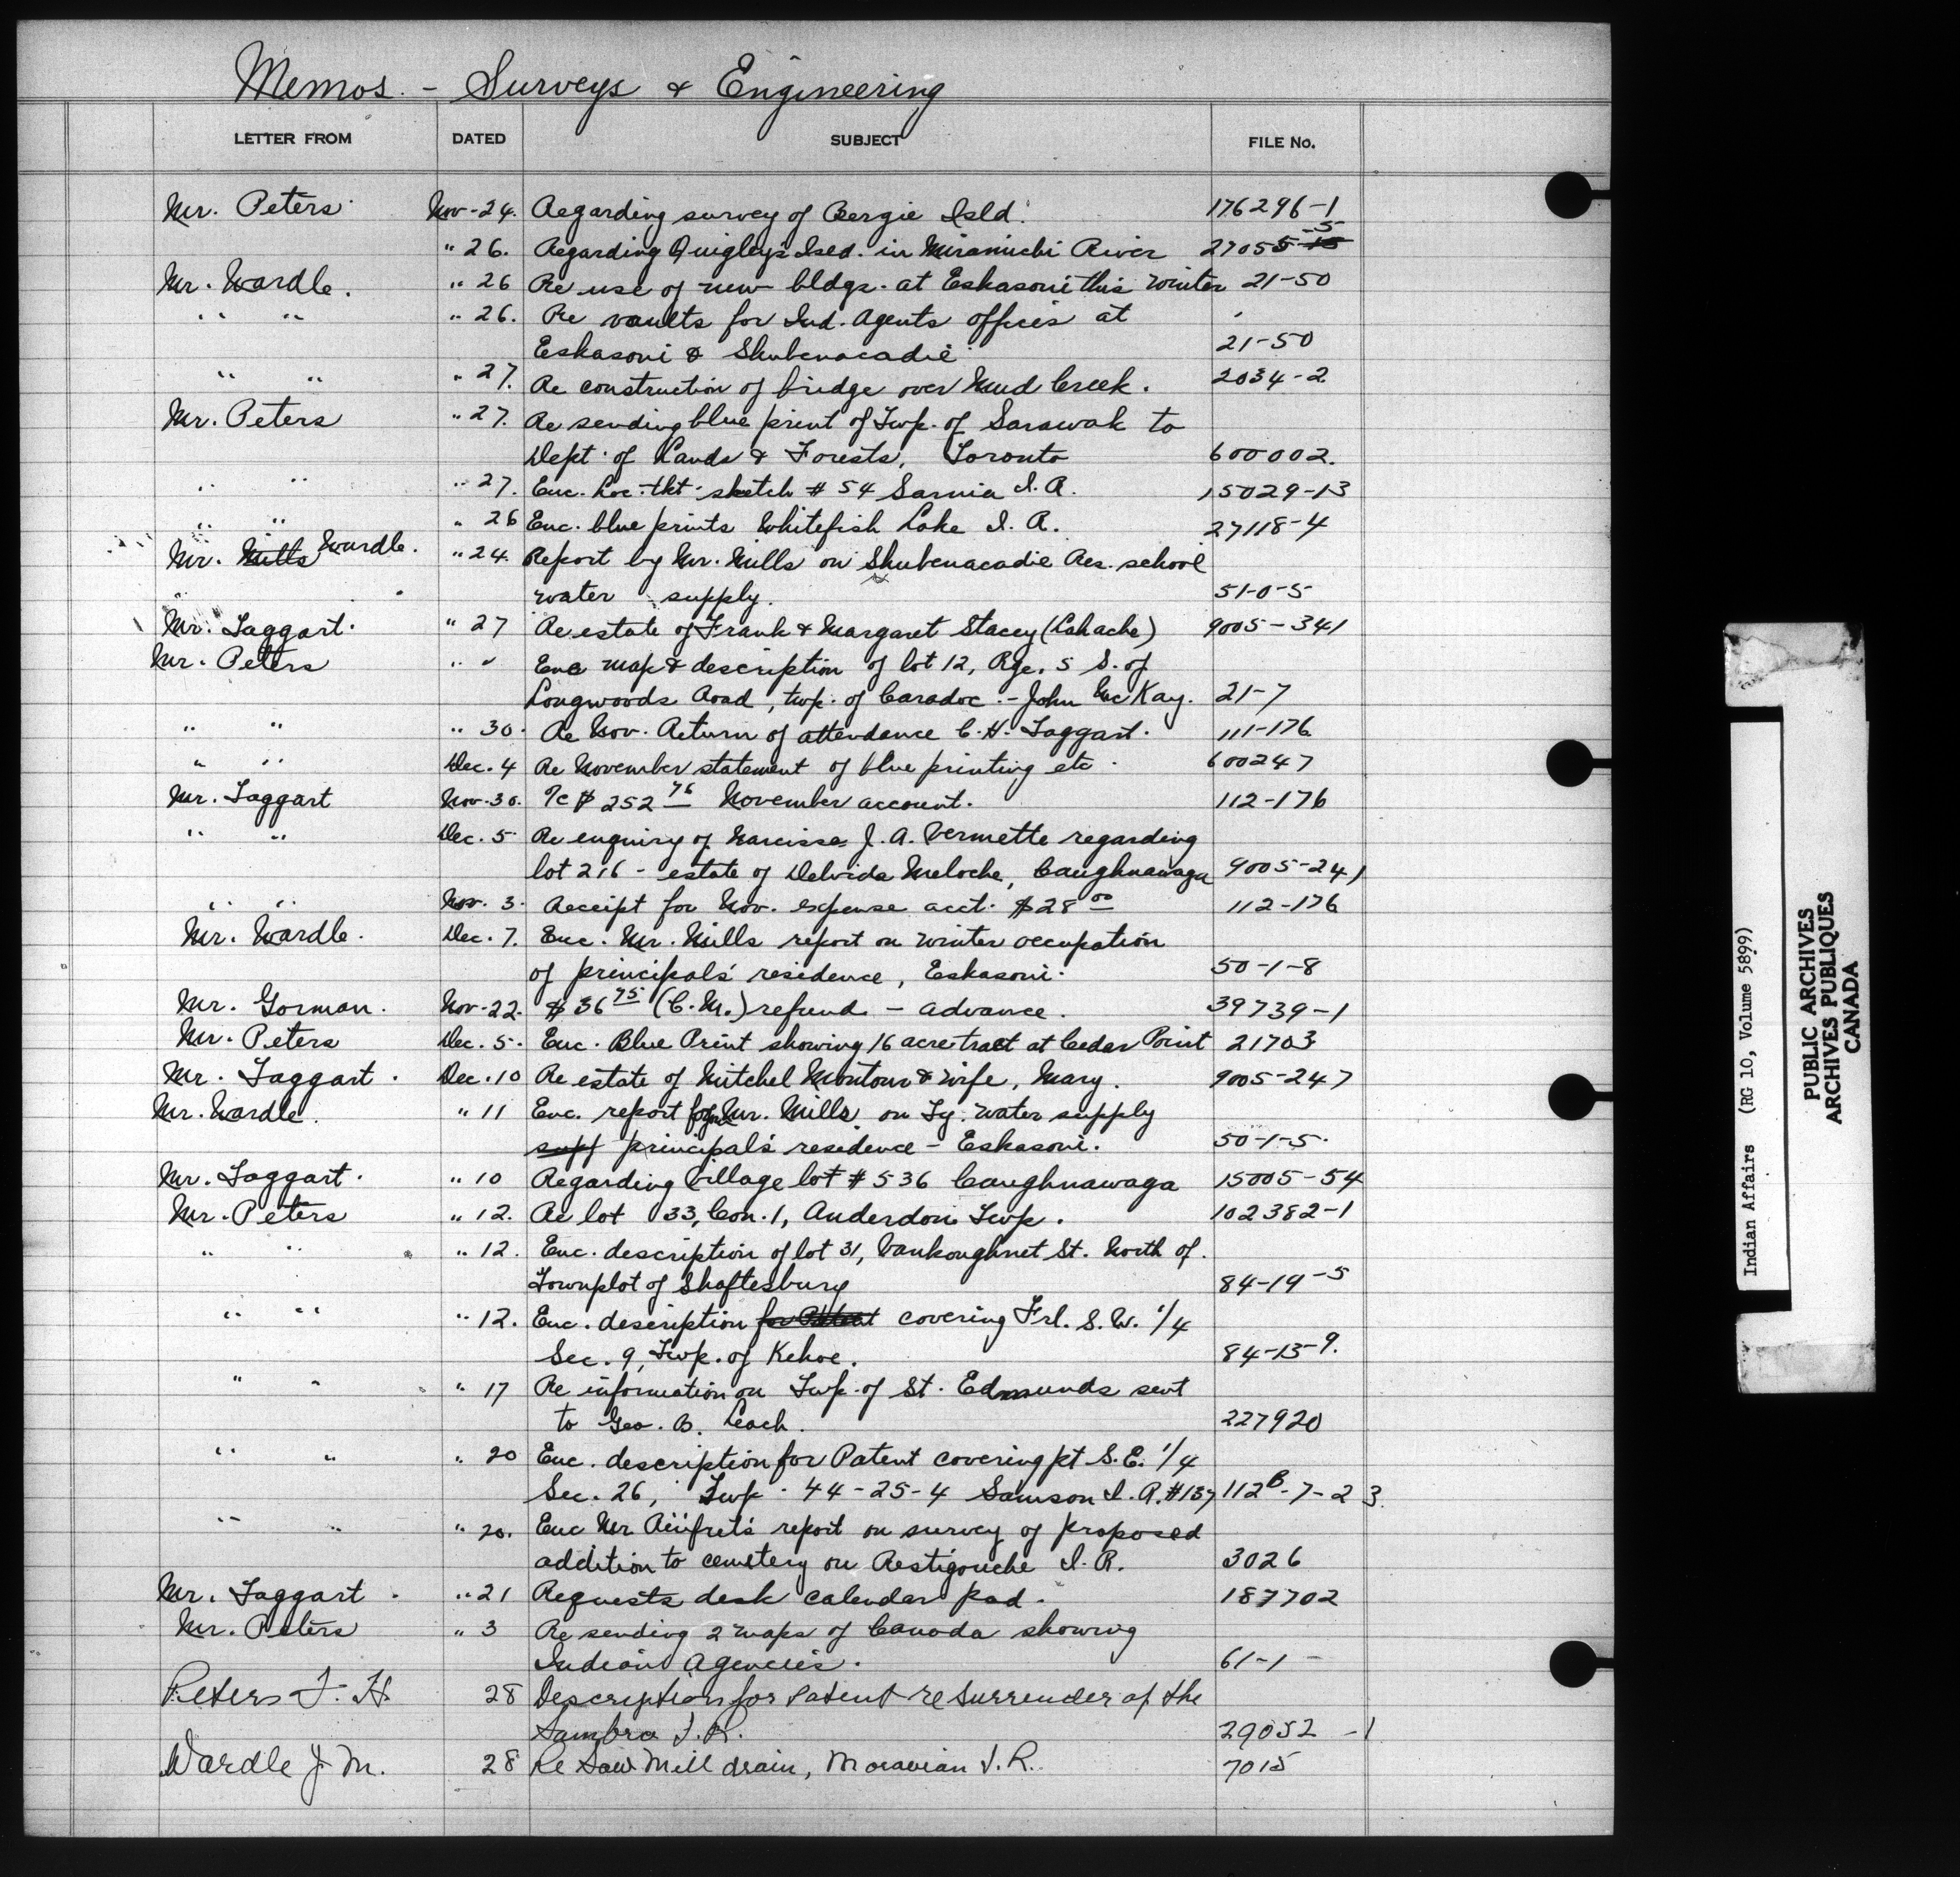 Memos. - Surveys & Engineering
LETTER FROM DATED SUBJECT FILE No.
Mr. Peters Nov-24. Regarding survey of Bergie Isld. 176296-1
" 26. Regarding Quigley's Isld. in Miramichi River 27055-15 -5
Mr. Wardle. " 26 Re use of new bldgs. at Eskasoni this winter 21-50
" " " 26. Re vaults for Ind. Agents offices at
Eskasoni & Shubenacadie 21-50
" " " 27. Re construction of bridge over Mud Creek. 2034-2
Mr. Peters " 27. Re sending blue print of Twp. of Sarawak to
Dept. of Lands & Forests, Toronto 600002.
" " " 27. Enc. Loc. tkt. sketch # 54 Sarnia I.R. 15029-13
" " " 26 Enc. blue prints Whitefish Lake I.R. 27118-4
Mr. Mills Wardle. " 24. Report by Mr. Mills on Shubenacadie Res. school
water supply. 51-0-5
Mr. Taggart. " 27 Re estate of Frank & Margaret Stacey (Lahache) 9005-341
Mr. Peters " " Enc map & description of lot 12, Rge. 5 S. of
Longwoods Road, twp. of Caradoc - John McKay. 21-7
" " " 30. Re Nov. Return of attendance C.H. Taggart. 111-176
" " Dec. 4 Re November statement of blue printing etc. 600247
Mr. Taggart Nov-30. %c $ 252 76 November account. 112-176
" " Dec. 5 Re enquiry of Narcisse J.A. Vermette regarding
lot 216 - estate of Delvida Meloche, Caughnawaga 9005-241
" " Nov. 3. Receipt for Nov. expense acct. $28 00 112-176
Mr. Wardle. Dec. 7. Enc. Mr. Mills report on winter occupation
of principal's residence, Eskasoni. 50-1-8
Mr. Gorman. Nov-22. $36 75 (C.M.) refund - advance. 39739-1
Mr. Peters Dec. 5. Enc. Blue Print showing 16 acre tract at Cedar Point 21703
Mr. Taggart. Dec. 10 Re estate of Mitchel Montour & wife, Mary. 9005-247
Mr. Wardle. " 11 Enc. report from Mr. Mills on Ty. water supply
supp principal's residence - Eskasoni. 50-1-5.
Mr. Taggart. " 10 Regarding Village lot # 536 Caughnawaga 15005-54
Mr. Peters " 12. Re lot 33, Con. 1, Anderdon Twp. 102382-1
" " " 12. Enc. description of lot 31, Vankoughnet St. North of.
Townplot of Shaftesbury 84-19-5
" " " 12. Enc. description for Patent covering Frl. S.W. 1/4
Sec. 9, Twp. of Kehoe. 84-13-9.
" " " 17 Re information on Twp. of St. Edmunds sent
to Geo. B. Leach. 227920
" " " 20 Enc. description for Patent covering pt S.E. 1/4
Sec. 26, Twp. 44-25-4 Samson I.R. #137 112B-7-23.
" " " 20. Enc Mr report on survey of proposed
addition to cemetery on Restigouche I.R. 3026
Mr. Taggart. " 21 Requests desk calendar pad. 187702
Mr. Peters " 3 Re sending 2 maps of Canada showing
Indian Agencies. 61-1-
Peters F. H. 28 Description for patent re surrender of the
Sambro I.R. 29052-1
Wardle J M. 28 Re Saw Mill drain, Moravian I.R. 7015
Indian Affairs (RG 10, Volume 5899)
PUBLIC ARCHIVES
ARCHIVES PUBLIQUES
CANADA